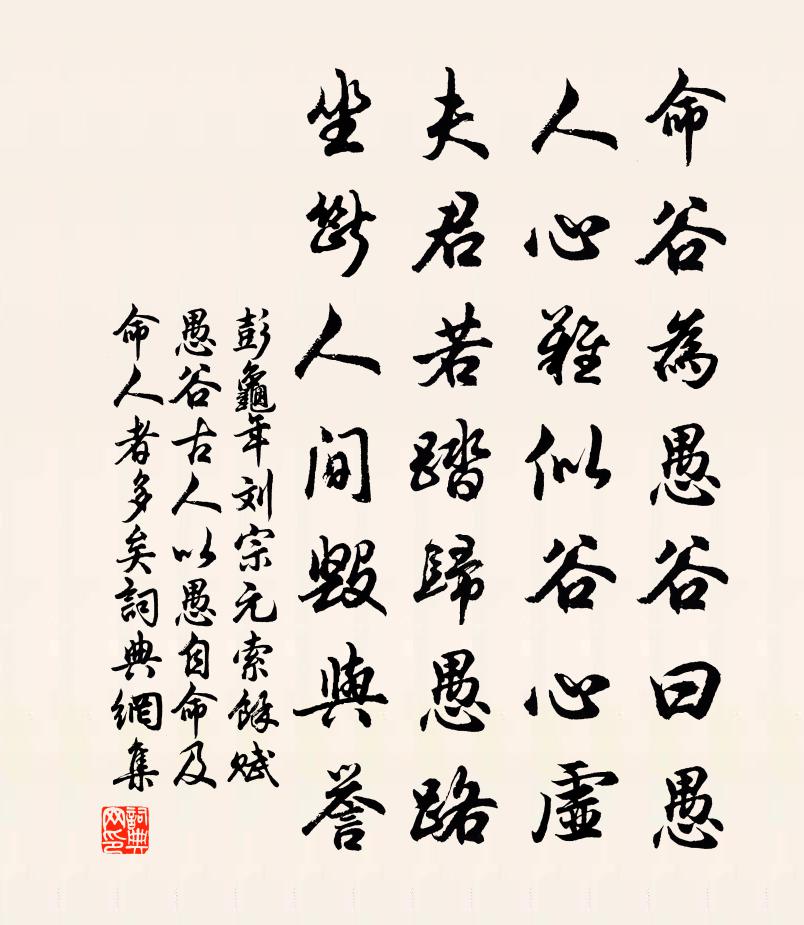 命谷為愚谷曰愚
人心難似谷心虛
夫君若踏歸愚路
坐斷人間毀與譽
彭龜年刘宗元索餘赋
愚谷古人以愚自命及
命人者多矣詞典網集
詞典網印